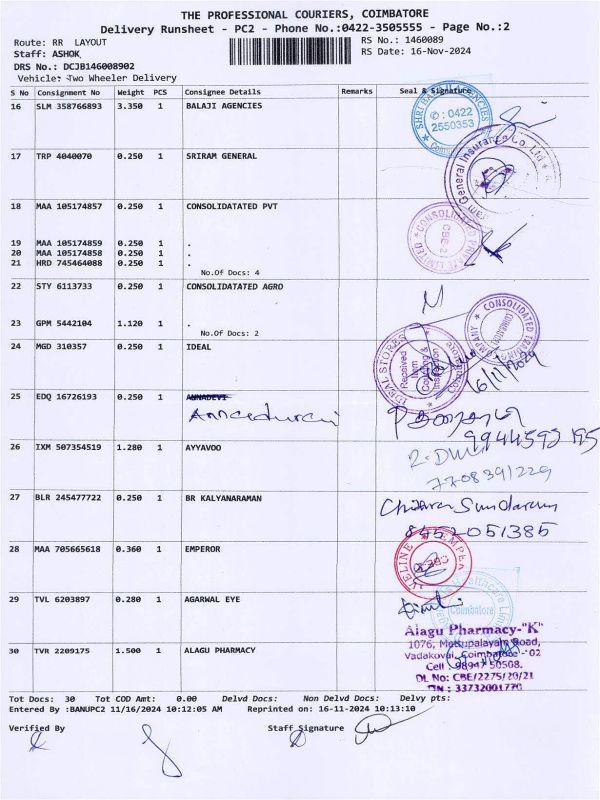 THE PROFESSIONAL COURIERS, COIMBATORE
Delivery Runsheet - PC2 - Phone No.:0422-3505555 - Page No.:2
Route: RR LAYOUT
RS No.: 1460089
Staff: ASHOK
RS Date: 16-Nov-2024
DRS No.: DCJB146008902
Vehicle: Two Wheeler Delivery
S No Consignment No Weight PCS Consignee Details Remarks Seal & Signature
16 SLM 358766893 3.350 1 BALAJI AGENCIES
✆ : 0422
2550353
17 TRP 4040070 0.250 1 SRIRAM GENERAL
General Insurance Co. Ltd
18 MAA 105174857 0.250 1 CONSOLIDATATED PVT
CBE-2
19 MAA 105174859 0.250 1 .
20 MAA 105174858 0.250 1 .
21 HRD 745464088 0.250 1 .
No.Of Docs: 4
22 STY 6113733 0.250 1 CONSOLIDATATED AGRO
23 GPM 5442104 1.120 1 .
No.Of Docs: 2
24 MGD 310357 0.250 1 IDEAL
IDEAL STORES
Received
Item
16/11/2024
25 EDQ 16726193 0.250 1 ANNADEVI
Annadurai
26 IXM 507354519 1.280 1 AYYAVOO
7708391229
27 BLR 245477722 0.250 1 BR KALYANARAMAN
28 MAA 705665618 0.360 1 EMPEROR
29 TVL 6203897 0.280 1 AGARWAL EYE
Coimbatore
30 TVR 2209175 1.500 1 ALAGU PHARMACY
Alagu Pharmacy-"K"
1076, Mettupalayam Road,
Vadakovai, Coimbatore - 02
Cell : 98947 50508.
DL No: CBE/2275/20/21
Tot Docs: 30 Tot COD Amt: 0.00 Delvd Docs: Non Delvd Docs: Delvy pts:
Entered By :BANUPC2 11/16/2024 10:12:05 AM Reprinted on: 16-11-2024 10:13:10
Verified By
Staff Signature